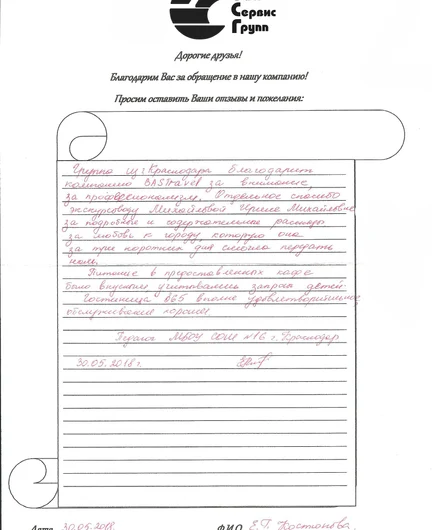 Сервис
Групп
Дорогие друзья!
Благодарим Вас за обращение в нашу компанию!
Просим оставить Ваши отзывы и пожелания:
Группа из г. Краснодара благодарит
компанию BASTravel за внимание,
за профессионализм. Отдельное спасибо
экскурсоводу Михайловой Ирине Михайловне
за подробные и содержательные рассказы
за любовь к городу, которую она
за три коротких дня смогла передать
нам.
Питание в предоставленных кафе
было вкусным учитывались запросы детей.
Гостиница вполне удовлетворительно,
обслуживание хорошее
Педагог МБОУ СОШ №16 г. Краснодар
30.05.2018г.
Дата 30.05.2018 Ф.И.О. Е.Г. Костонова